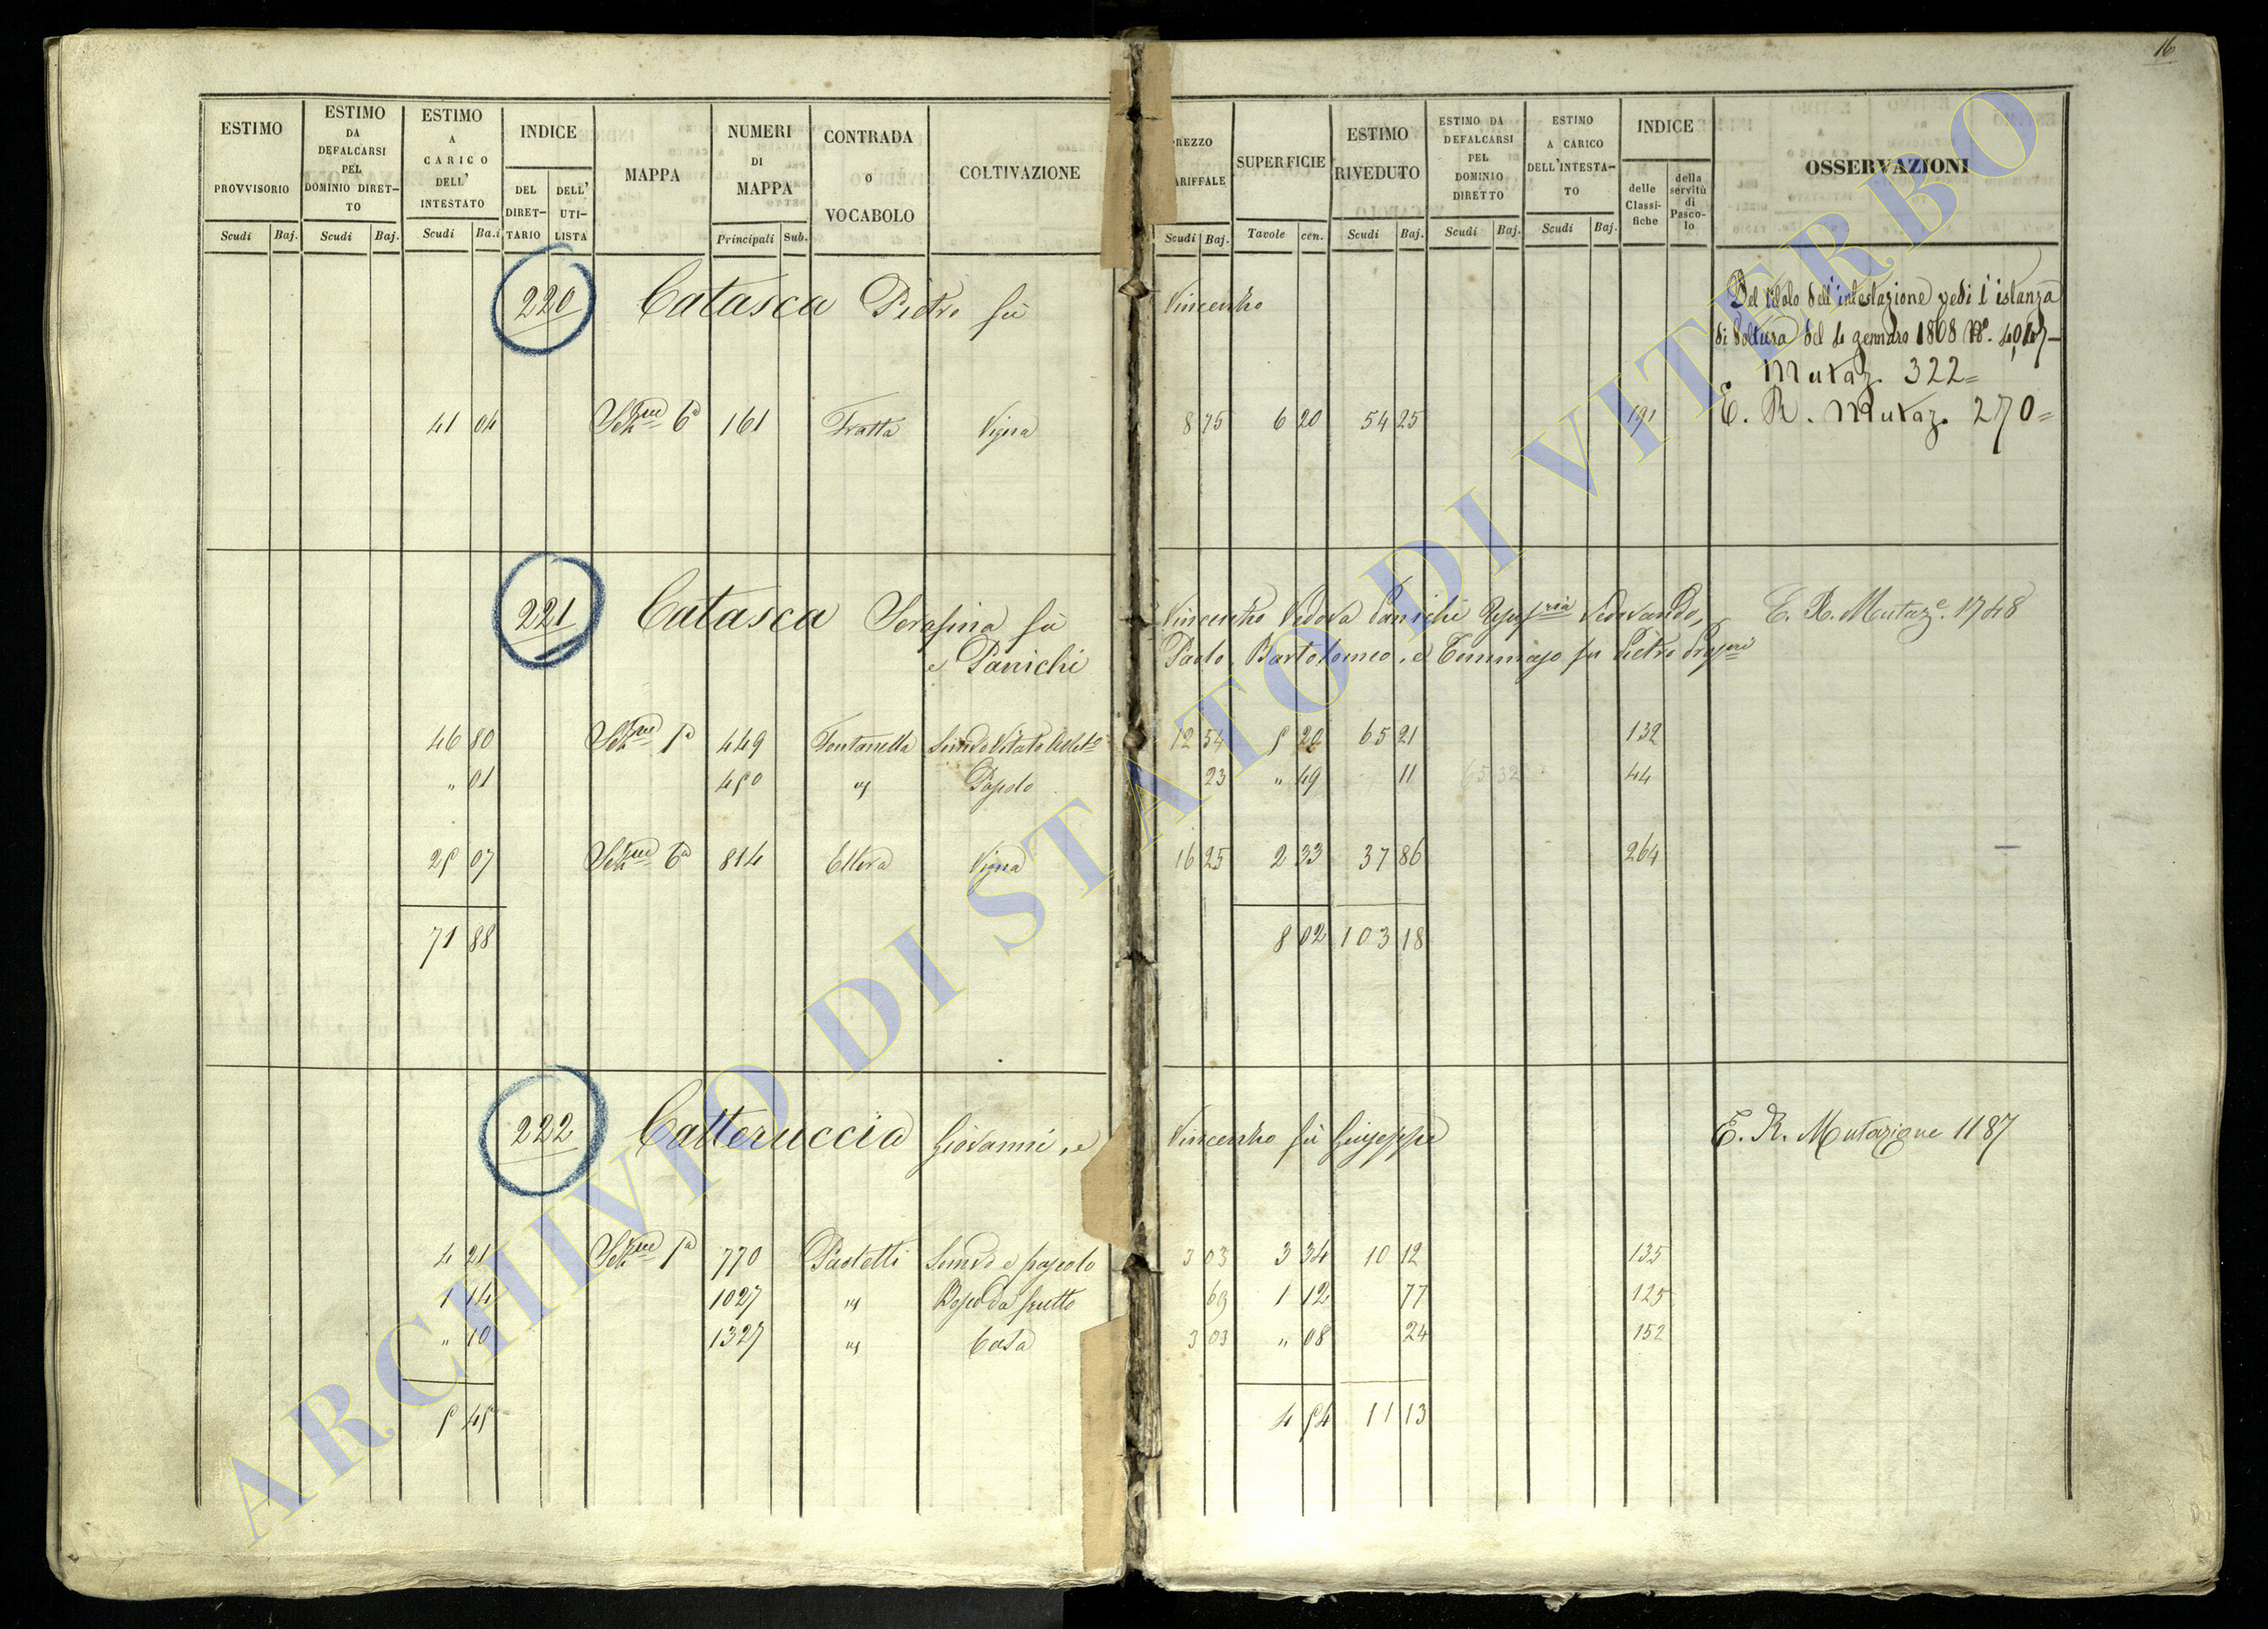 16
ESTIMO PROVVISORIO Scudi Baj.
ESTIMO DA DEFALCARSI PEL DOMINIO DIRETTO Scudi Baj.
ESTIMO A CARICO DELL' INTESTATO Scudi Ba.i
INDICE DEL DIRETTARIO DELL' UTILISTA
MAPPA
NUMERI DI MAPPA Principali Sub.
CONTRADA O VOCABOLO
COLTIVAZIONE
PREZZO TARIFFALE Scudi Baj.
SUPERFICIE Tavole cen.
ESTIMO RIVEDUTO Scudi Baj.
ESTIMO DA DEFALCARSI PEL DOMINIO DIRETTO Scudi Baj.
ESTIMO A CARICO DELL'INTESTATO Scudi Baj.
INDICE delle Classifiche della servitù di Pascolo
OSSERVAZIONI
220 Catasca Pietro fù Vincenzo
Del titolo dell'intestazione vedi l'istanza
di Voltura del 4 gennaro 1868 N°.
Mutaz. 322
E. R. Mutaz. 270
41 04 Sezne 6a 161 Fratta Vigna 8 75 6 20 54 25 191
221 Catasca Serafina fù Vincenzo Vedova Panichi Vedovando, E. R. Mutaze. 1748
e Panichi Paolo, Bartolomeo, e Tommaso fu Pietro Propri
46 80 Sezne 1a 449 Fontanella Semvo Vitato 12 54 5 20 65 21 132
" 01 450 id Pascolo 23 " 49 11 44
25 07 Sezne 6a 814 Ellera Vigna 16 25 2 33 37 86 264
71 88 8 02 103 18
222 Catteruccia Giovanni, e Vincenzo fù Giuseppe E. R. Mutazione 1187
4 21 Sezne 1a 770 Pastelli Semvo e pascolo 3 03 3 34 10 12 135
1 14 1027 id Bosco da frutto 69 1 12 77 125
" 10 1327 id Casa 3 03 " 08 24 152
5 45 4 54 11 13
ARCHIVIO DI STATO DI VITERBO